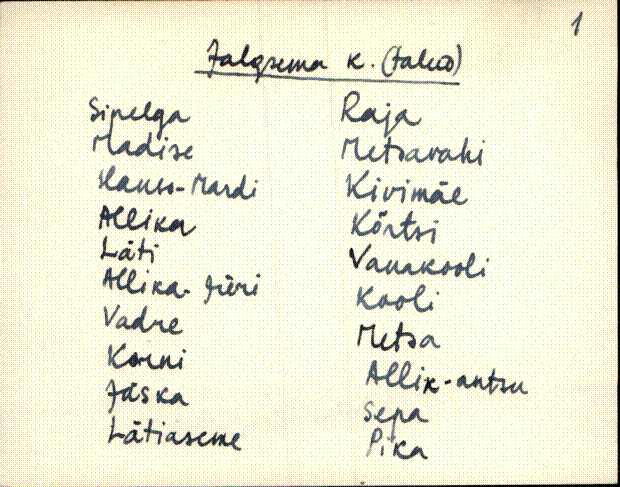 1
Jalgsema k. (talud)
Sipelga
Madise
Hanso-Mardi
Allika
Läti
Allika-Jüri
Vadre
Korni
Jaska
Lätiaseme
Raja
Metsavahi
Kivimäe
Kõrtsi
Vanakooli
Kooli
Metsa
Allik-antsu
Sepa
Pika